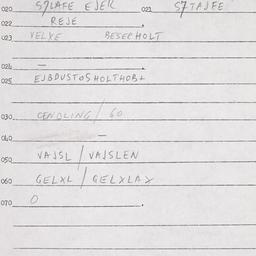 020 S7LAFE EJER 021 S7TAJFE
022 REJE
023 VELXE BESEPHOLT
024 —
025 EJBDUSTOSHOLTHOB+
030 CENDLING / 60
040 —
050 VAJSL / VAJSLEN
060 GELXL / GELXLAX
070 0